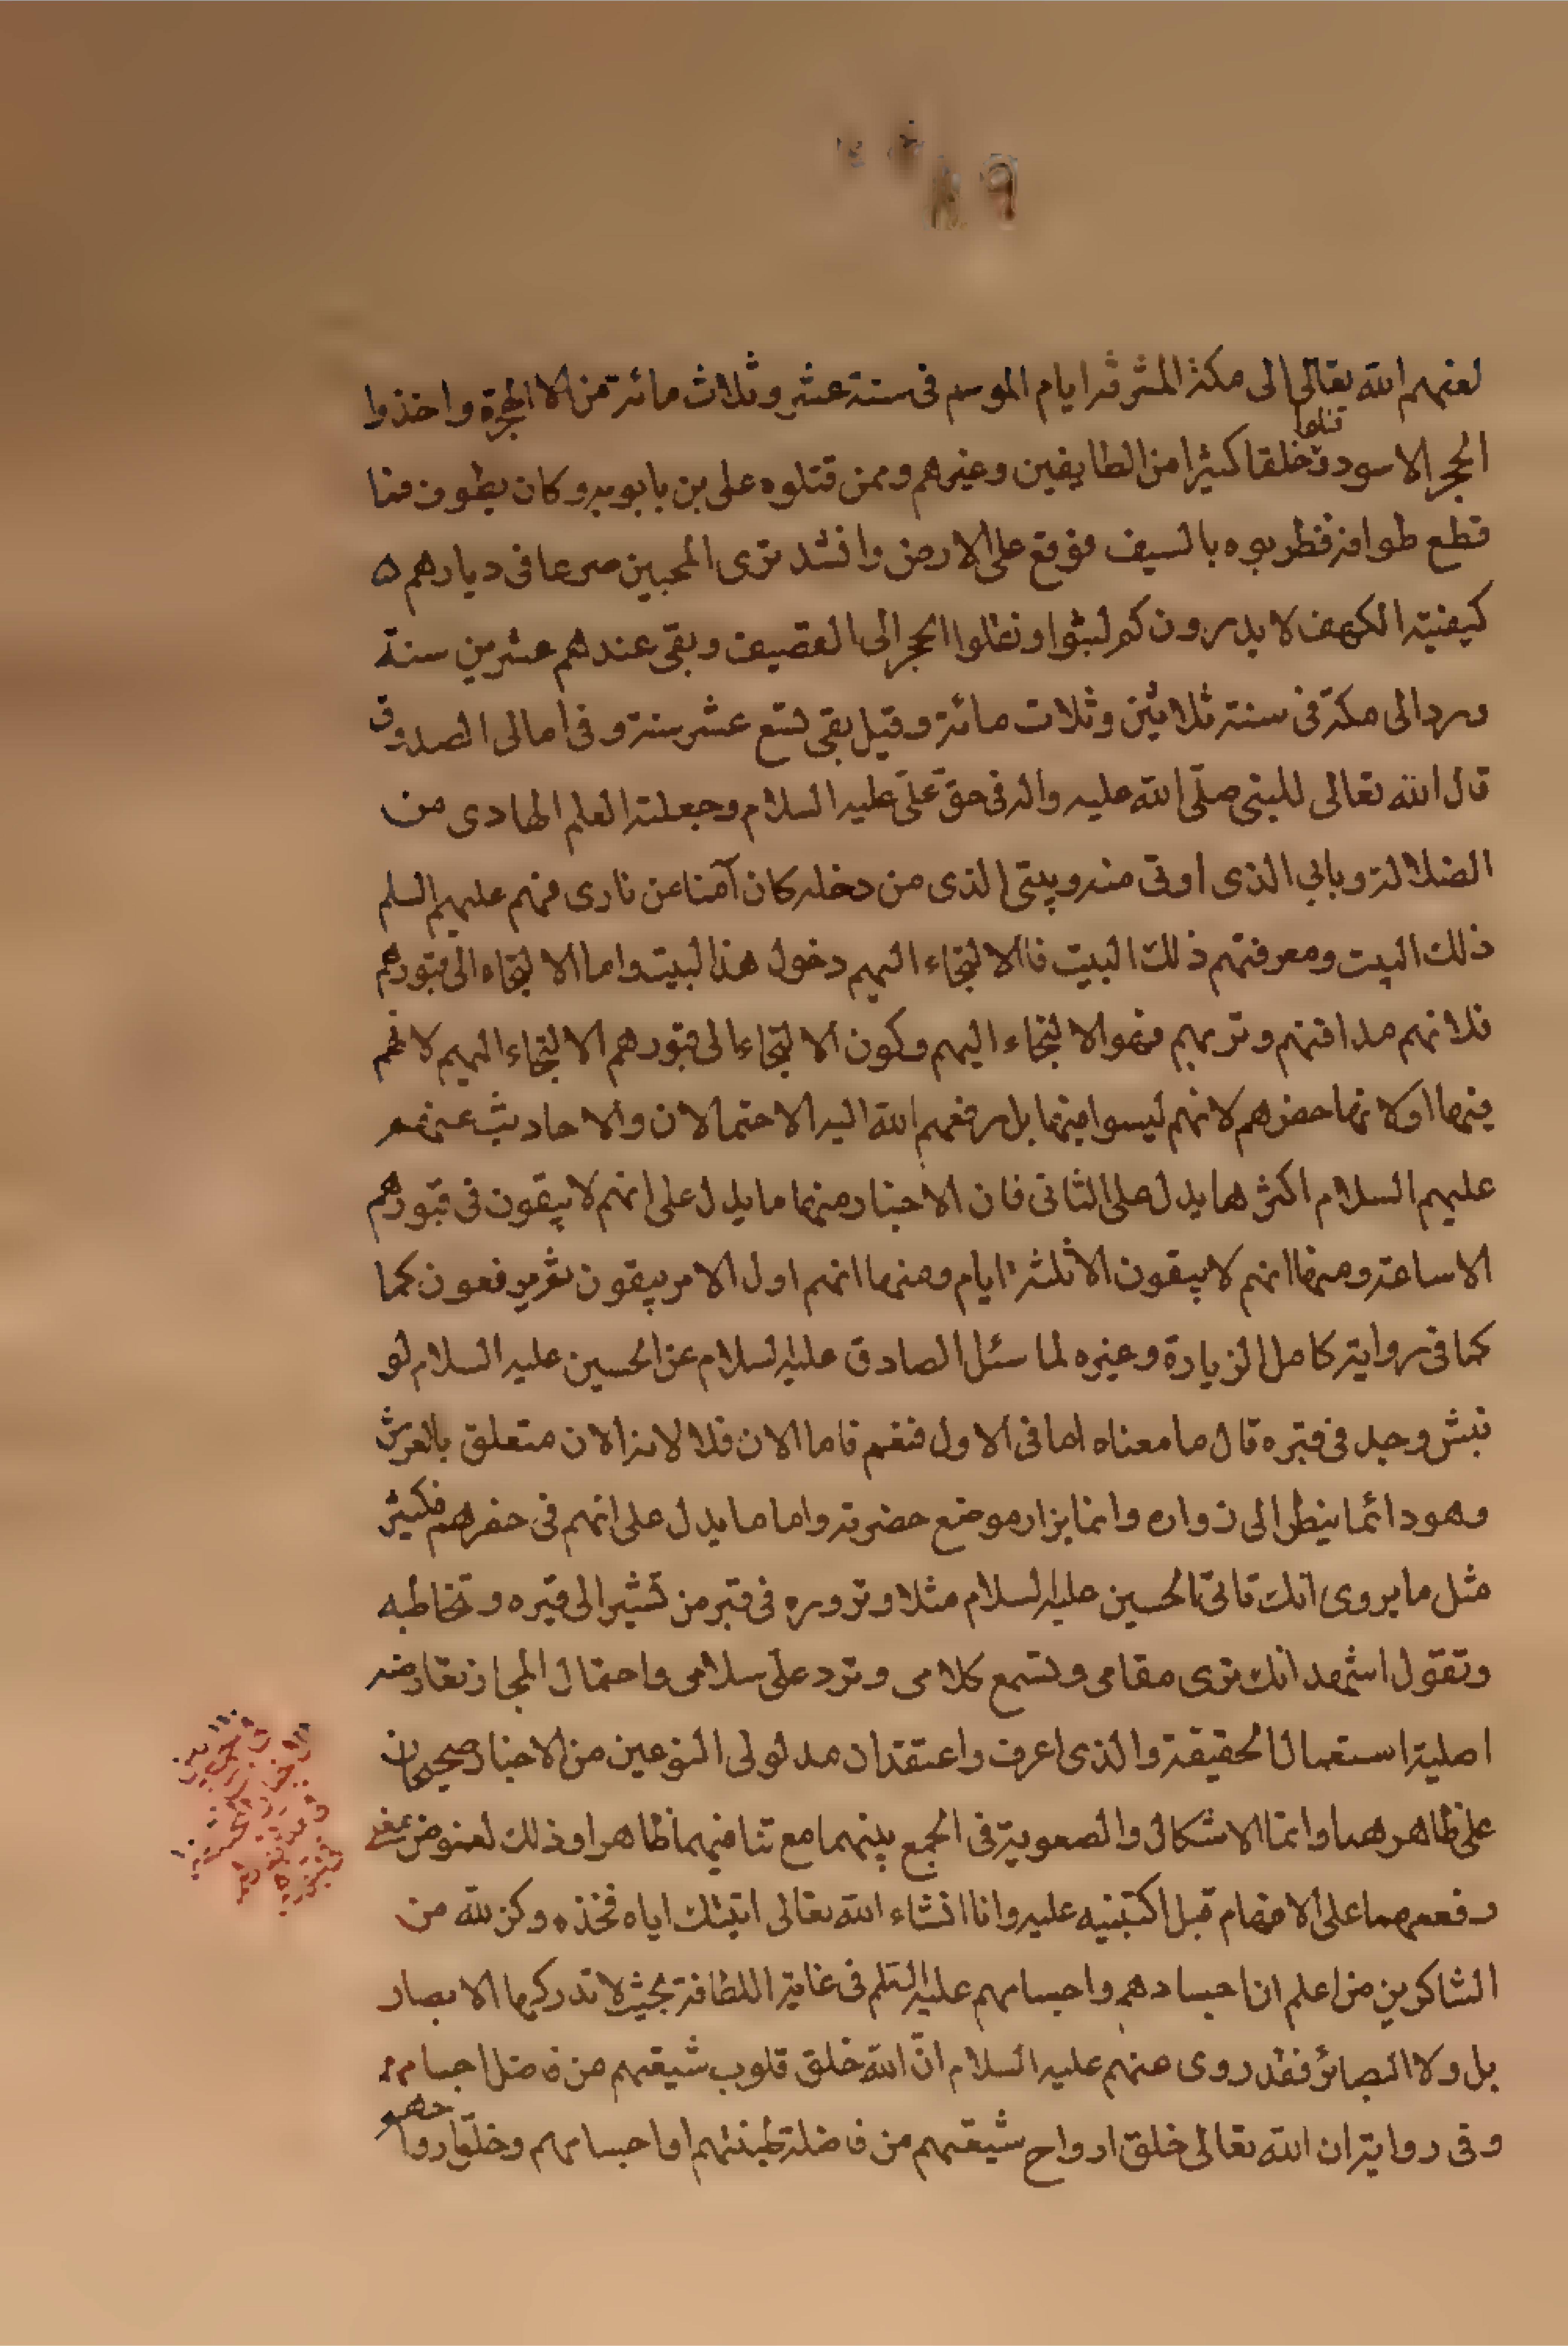 ٨٩
لعنهم الله تعالى الى مكة المشرفة ايام الموسم فى سنة عشر وثلاث مائة من الا الهجرة واخذوا
قتلوا
الحجر الاسود وخلقا كثيرا من الطايفين وغيرهم وممن قتلوه على بن بابويه وكان يطوف فما
قطع طوافه فضربوه بالسيف فوقع على الارض وانشد ترى المحبين صرعا فى ديارهم ه
كفيتة الكهف لا يدرون كم لبثوا ونقلوا الحجر الى القطيف وبقى عندهم عشرين سنة
ورد الى مكة فى سنة ثلاثين وثلاث مائة وقيل بقى تسع عشر سنة وفى امالى الصدوق
قال الله تعالى للنبى صلّى الله عليه واله فى حقّ علّى عليه السلام وجعلته العلم الهادى من
الضلالة وبابي الذى اوتى منه وبيتى الذى من دخله كان آمنا عن نارى فهم عليهم السلم
ذلك البيت ومعرفتهم ذلك البيت فاالالتجاء اليهم دخول هذا البيت واما الالتجاء الى قبورهم
فلانهم مدافنهم وتربهم فهو الالتجاء اليهم وكون الالتجاء الى قبورهم الالتجاء اليهم لانهم
فيها اولانها حفرهم لانهم ليسوا فيها بل رفعهم الله اليه الاحتمالان والاحاديث عنهم
عليهم السلام اكثرها يدل على الثانى فان الاخبار منها ما يدل على انهم لا يبقون فى قبورهم
الا ساعة ومنها انهم لا يبقون الا ثلثة ايام ومنها انهم اول الامر يبقون ثم يرفعون كما
كما فى رواية كامل الزيارة وغيره لما سئل الصادق عليه السلام عن الحسين عليه السلام لو
نبش وجد فى قبره قال ما معناه اما فى الاول فنعم فاما الان فلا لانه الان متعلق بالعرش
وهو دائما ينظر الى زواره وانما يزار موضع حضرته واما ما يدل على انهم فى حفرهم فكثير
مثل ما يروى انك تاتى الحسين عليه السلام مثلا وتزوره فى قبره من تشير الى قبره وتخاطبه
وتقول اشهد انك ترى مقامى وتسمع كلامى وترد علّى سلامى واحتمال المجاز تعارضه
اصلية استعمال الحقيقة والذى اعرف واعتقد ان مدلولى النوعين من الاخبار صحيحان
على ظاهرهما وانما الاشكال والصعوبة فى الجمع بينهما مع تنافيهما ظاهرا وذلك لغموض
دفعهما على الافهام قبل اكتبنيه عليه وانا انشاء الله تعالى اتيتك اياه فخذه وكن لله من
الشاكرين من اعلم ان اجسادهم واجسامهم عليه السلم فى غاية اللطافة بحيث لا تدركها الابصار
بل ولا البصائر فقد روى عنهم عليه السلام انّ الله خلق قلوب شيعتهم من فاضل اجسامهم
وفى رواية ان الله تعالى خلق ارواح شيعتهم من فاضلة طينتهم او اجسامهم وخلق اروا
حهم